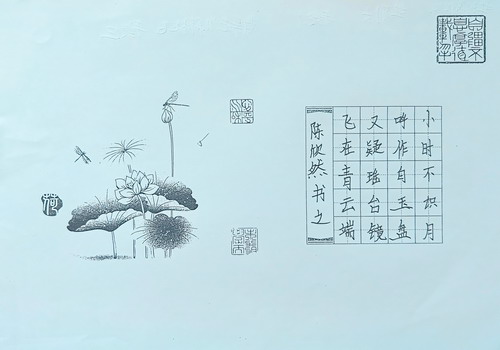 小时不识月
呼作白玉盘
又疑瑶台镜
飞在青云端
陈欣然书之